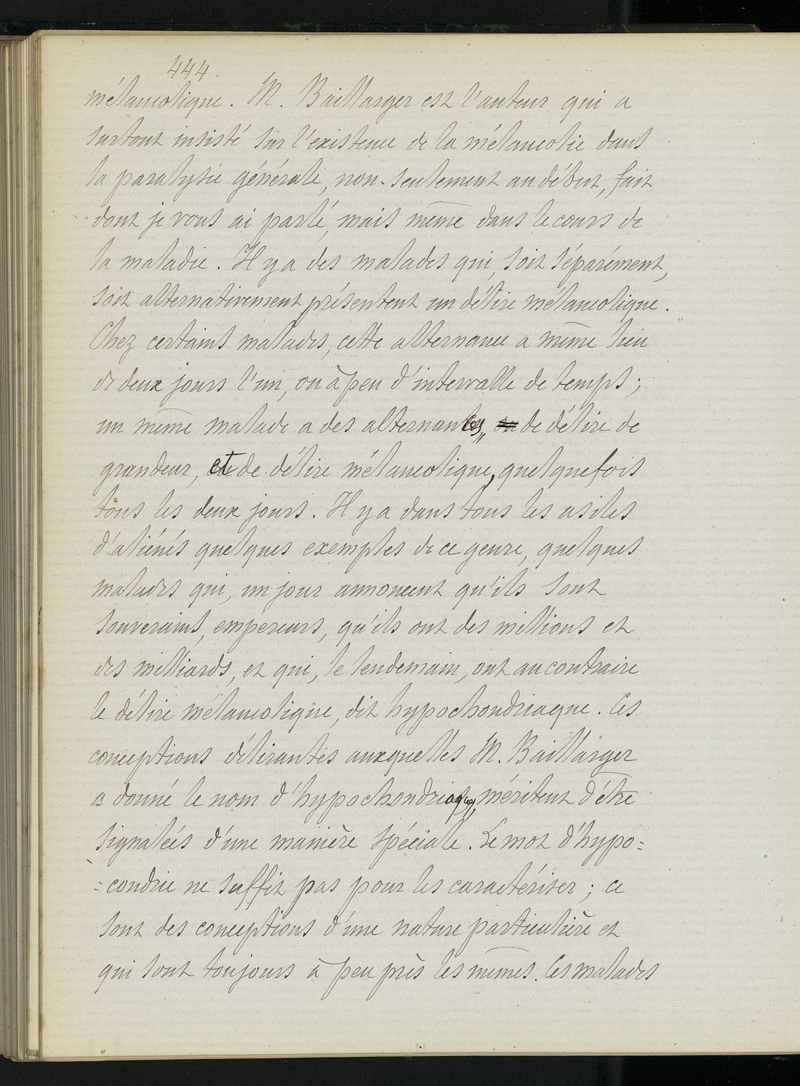 444.
mélancolique. M. Baillarger est l'auteur qui a
surtout insisté sur l'existence de la mélancolie dans
la paralysie générale, non-seulement au début, fait
dont je vous ai parlé, mais même dans le cours de
la maladie. Il y a des malades qui, soit séparément,
soit alternativement présentent un délire mélancolique.
Chez certains malades, cette alternance a même lieu
de deux jours l'un, ou à peu d'intervalle de temps;
un même malade a des alternances, de délire de
grandeur, et de délire mélancolique, quelquefois
tous les deux jours. Il y a dans tous les asiles
d'aliénés quelques exemples de ce genre, quelques
malades qui, un jour annoncent qu'ils sont
souverains, empereurs, qu'ils ont des millions et
des milliards, et qui, le lendemain, ont au contraire
le délire mélancolique, dit hypochondriaque. Ces
conceptions délirantes auxquelles M. Baillarger
a donné le nom d'hypochondriaques, méritent d'être
signalées d'une manière spéciale. Le mot d'hypo=
=condrie ne suffit pas pour les caractériser; ce
sont des conceptions d'une nature particulière et
qui sont toujours à peu près les mêmes. Ces malades